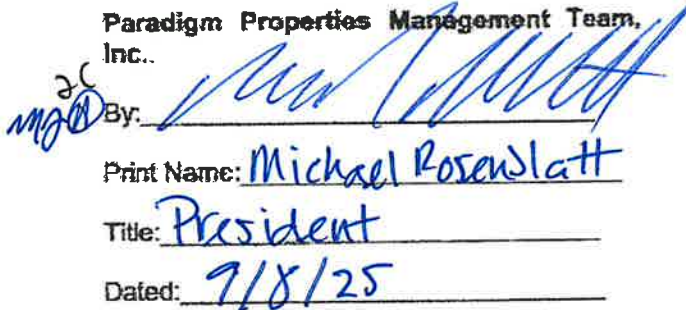 Paradigm Properties Management Team,
Inc..
By:
Print Name: Michael Rosenblatt
Title: President
Dated: 9/8/25